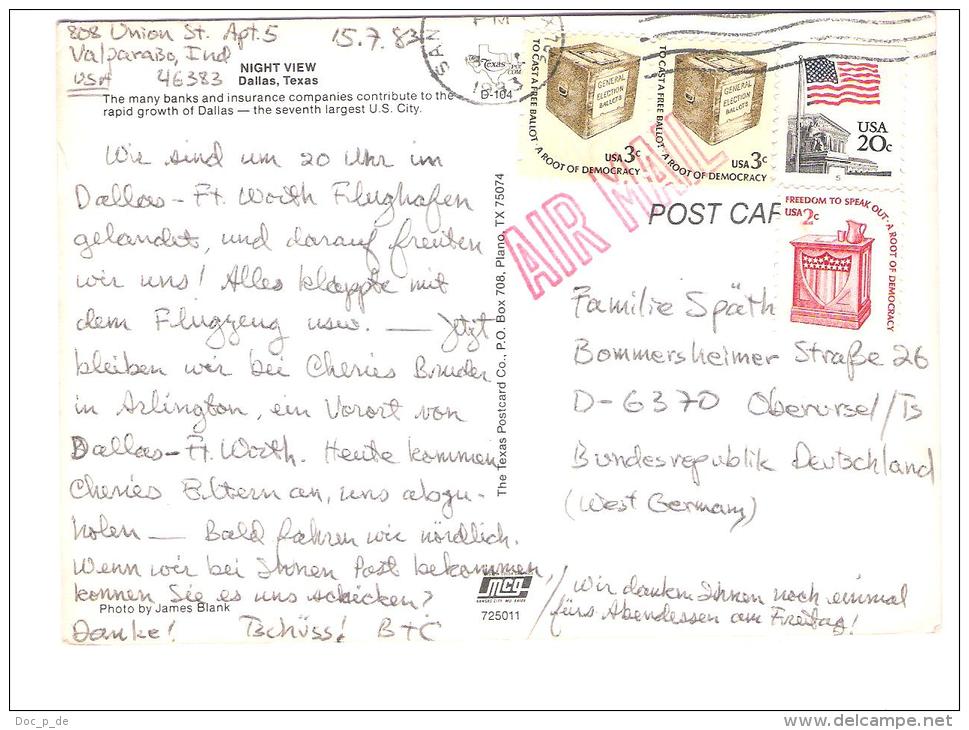 808 Union St. Apt.5 15.7.83
Valparaiso, Ind
USA 46383
NIGHT VIEW
Dallas, Texas
The many banks and insurance companies contribute to the
rapid growth of Dallas — the seventh largest U.S. City.
D-104
Wir sind um 20 Uhr im
Dallas - Ft. Worth Flughafen
gelandet, und darauf freuten
wir uns! Alles klappte mit
dem Flugzeug usw. — Jetzt
bleiben wir bei Cheries Bruder
in Arlington, ein Vorort von
Dallas-Ft. Worth. Heute kommen
Cheries Eltern an, uns abzu-
holen — Bald fahren wir nördlich.
Wenn wir bei Ihnen Post bekommen,
können Sie es uns schicken?
Photo by James Blank
Danke! Tschüss! B+C
The Texas Postcard Co., P.O. Box 708, Plano, TX 75074
mcg
725011
TO CAST A FREE BALLOT · A ROOT OF DEMOCRACY
GENERAL
ELECTION
BALLOTS
USA 3c
TO CAST A FREE BALLOT · A ROOT OF DEMOCRACY
GENERAL
ELECTION
BALLOTS
USA 3c
USA
20c
5
FREEDOM TO SPEAK OUT · A ROOT OF DEMOCRACY
USA 2c
AIR MAIL
POST CAR
Familie Späth
Bommersheimer Straße 26
D-6370 Oberursel/Ts
Bundesrepublik Deutschland
(West Germany)
/Wir danken Ihnen noch einmal
fürs Abendessen am Freitag!
Doc_p_de
www.delcampe.net